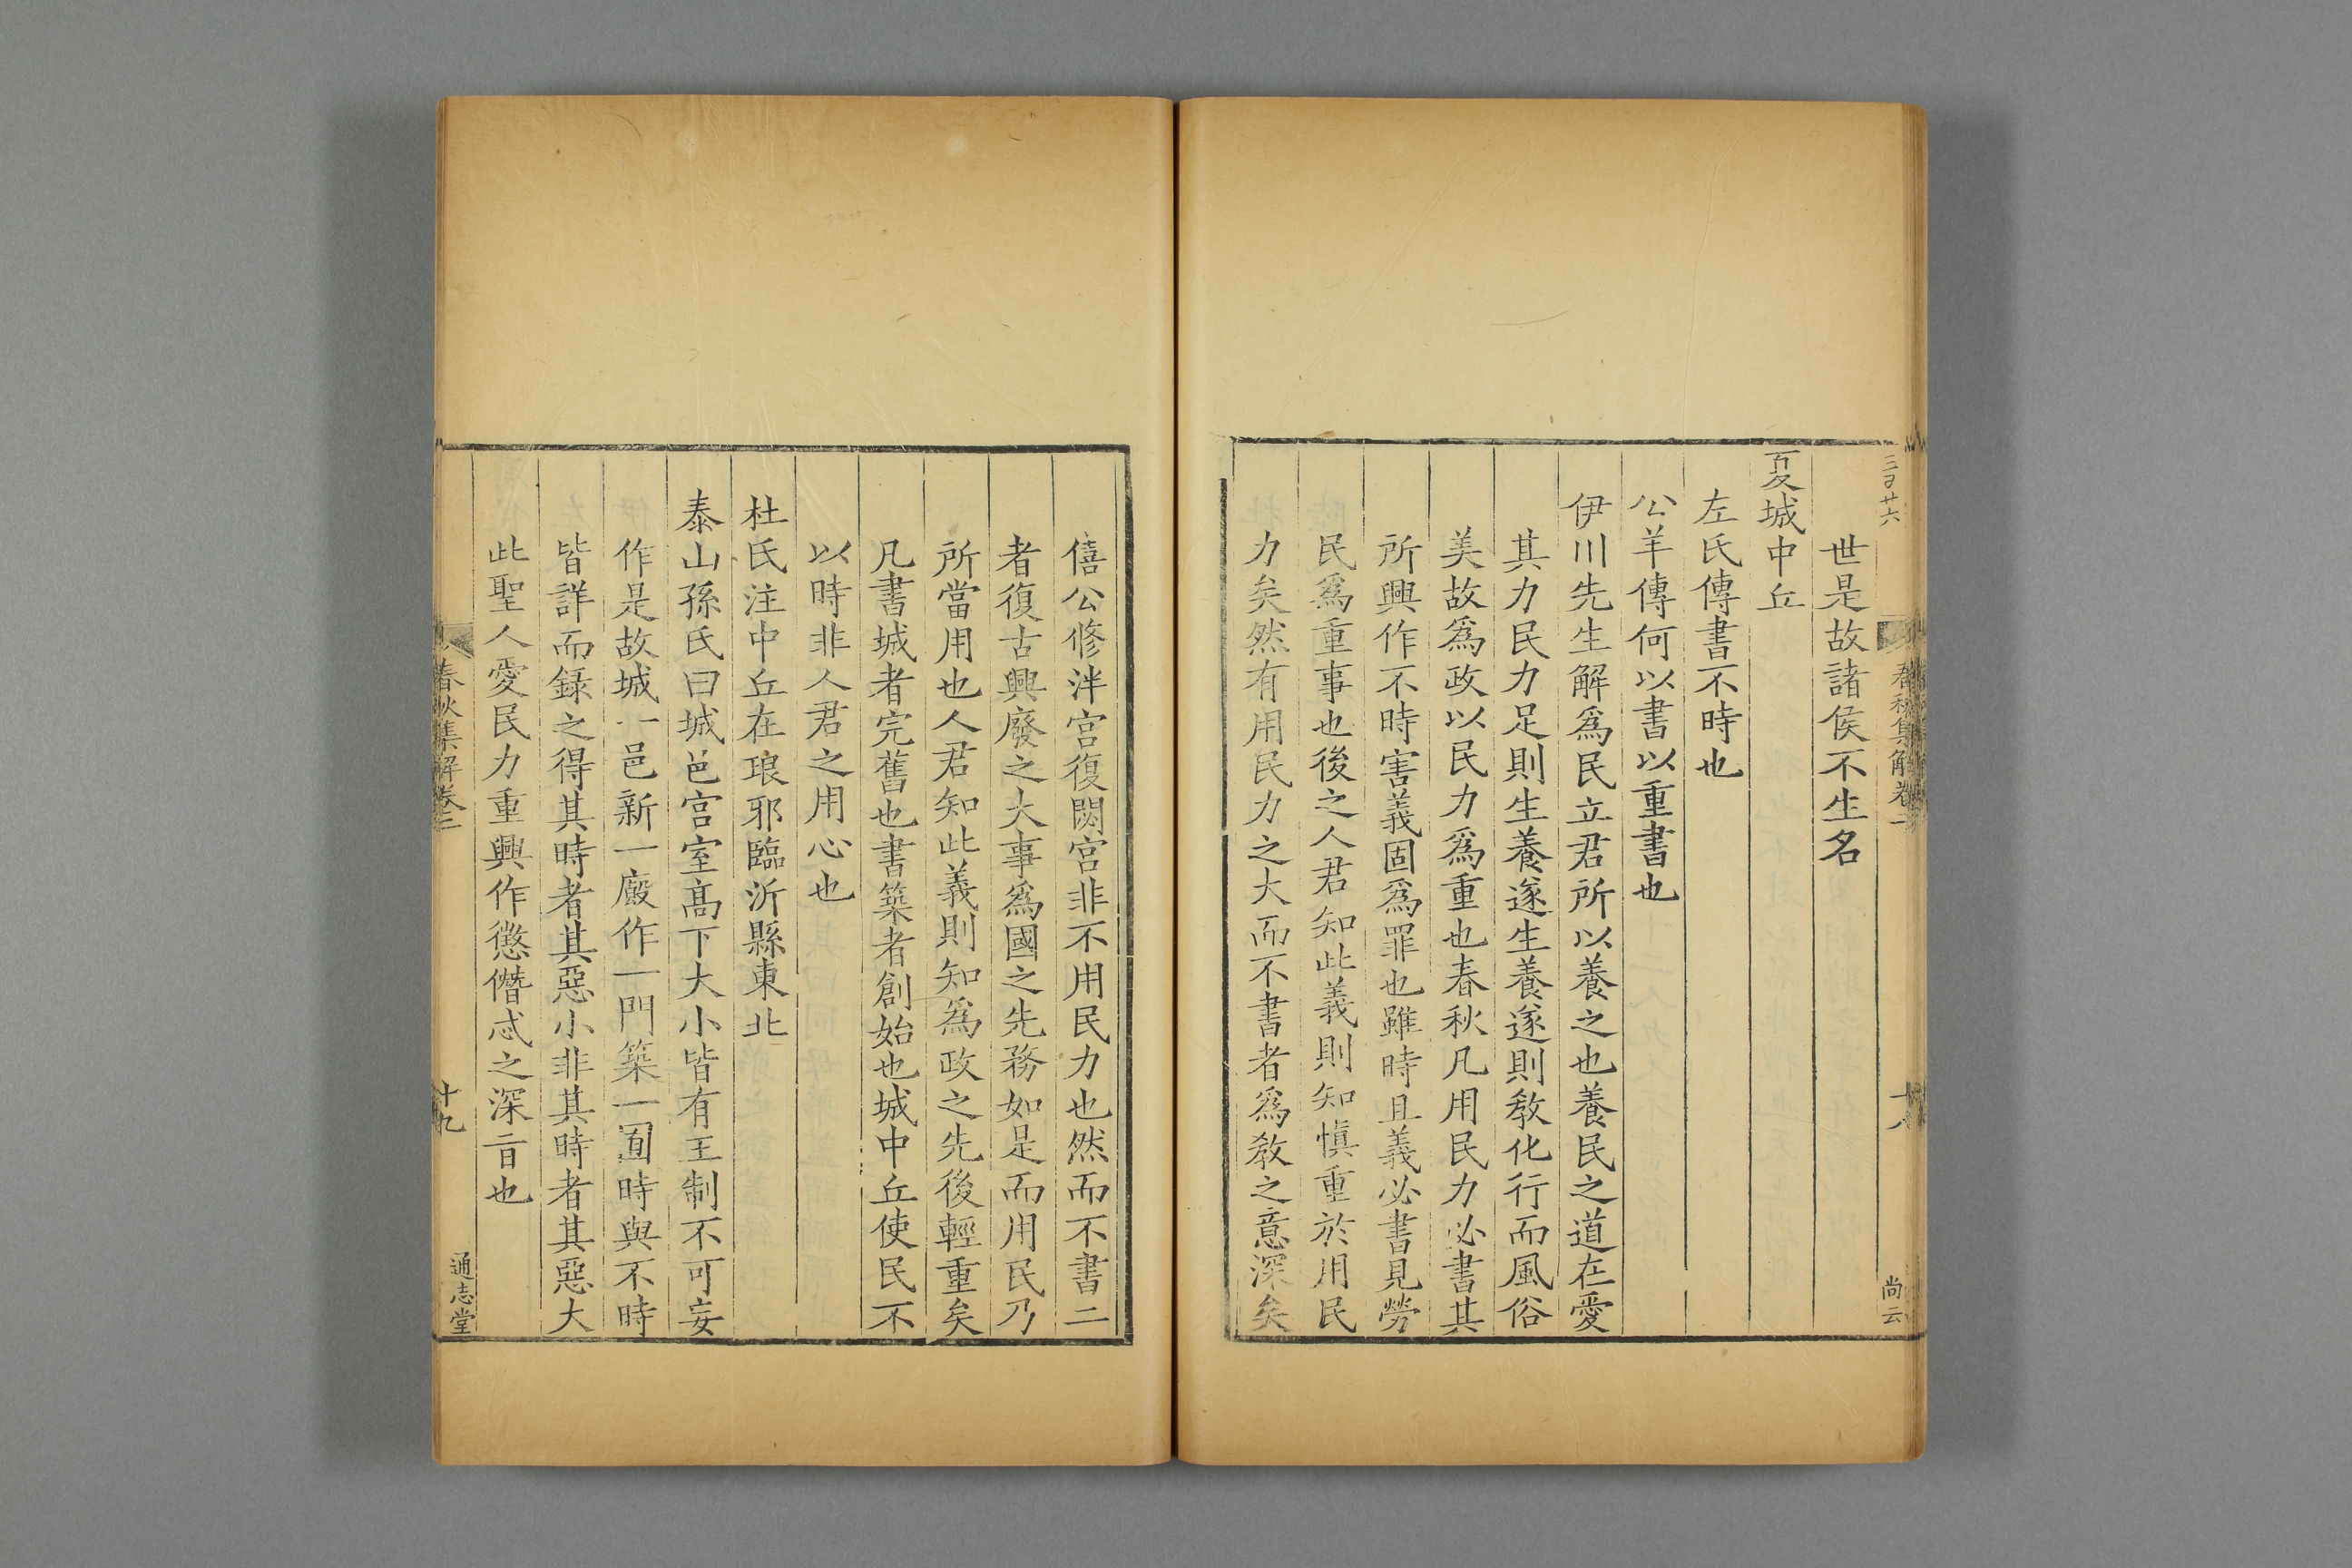 春秋集解卷二
十八
尚云
世是故諸侯不生名
夏城中丘
左氏傳書不時也
公羊傳何以書以重書也
伊川先生解爲民立君所以養之也養民之道在愛
其力民力足則生養遂生養遂則敎化行而風俗
美故爲政以民力爲重也春秋凡用民力必書其
所興作不時害義固爲罪也雖時且義必書見勞
民爲重事也後之人君知此義則知愼重於用民
力矣然有用民力之大而不書者爲敎之意深矣
僖公修泮宮復閟宮非不用民力也然而不書二
者復古興廢之大事爲國之先務如是而用民乃
所當用也人君知此義則知爲政之先後輕重矣
凡書城者完舊也書築者創始也城中丘使民不
以時非人君之用心也
杜氏注中丘在琅邪臨沂縣東北
泰山孫氏曰城邑宮室高下大小皆有王制不可妄
作是故城一邑新一廄作一門築一囿時與不時
皆詳而錄之得其時者其惡小非其時者其惡大
此聖人愛民力重興作懲僭忒之深旨也
春秋集解卷二
十九
通志堂